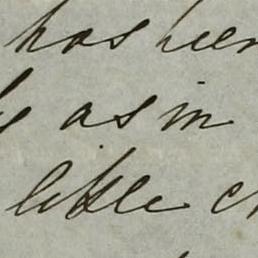 has been
as in
little